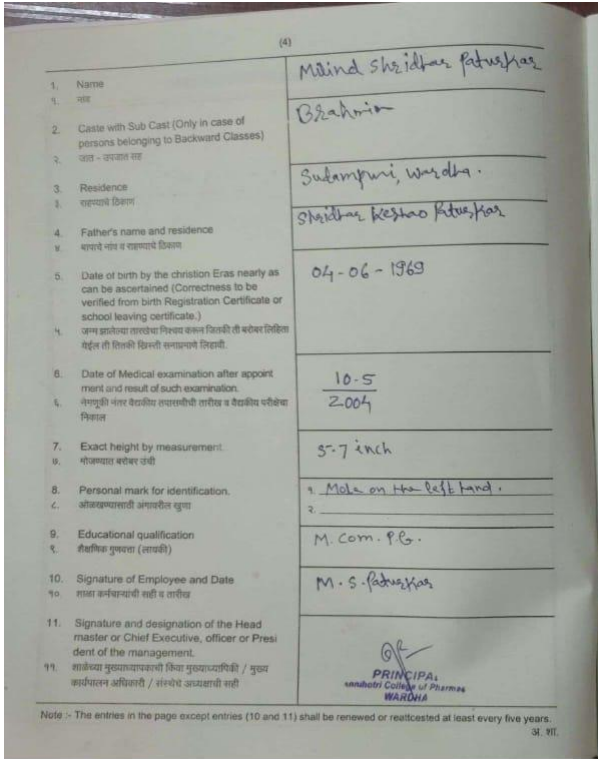 (4)
1. Name
१. नांव
Milind Shridhar Paturkar
2. Caste with Sub Cast (Only in case of
persons belonging to Backward Classes)
२. जात - उपजात सह
Brahmin
3. Residence
३. राहण्याचे ठिकाण
Sudampuri, Wardha.
4. Father's name and residence
४. बापाचे नांव व राहण्याचे ठिकाण
Shridhar Keshao Paturkar
5. Date of birth by the christion Eras nearly as
can be ascertained (Correctness to be
verified from birth Registration Certificate or
school leaving certificate.)
५. जन्म झालेल्या तारखेचा निश्चय करून जितकी ती बरोबर लिहिता
येईल ती तितकी ख्रिस्ती सनाप्रमाणे लिहावी.
04-06-1969
6. Date of Medical examination after appoint
ment and result of such examination.
६. नेमणूकी नंतर वैद्यकीय तपासणीची तारीख व वैद्यकीय परीक्षेचा
निकाल
10-5
2004
7. Exact height by measurement.
७. मोजण्यात बरोबर उंची
5-7 inch
8. Personal mark for identification.
८. ओळखण्यासाठी अंगावरील खुणा
१. Mole on the left hand.
२.
9. Educational qualification
९. शैक्षणिक गुणवत्ता (लायकी)
M. Com. P.G.
10. Signature of Employee and Date
१०. शाळा कर्मचाऱ्यांची सही व तारीख
M. S. Paturkar
11. Signature and designation of the Head
master or Chief Executive, officer or Presi
dent of the management.
११. शाळेच्या मुख्याध्यापकाची किंवा मुख्याध्यापिकी / मुख्य
कार्यपालन अधिकारी / संस्थेचे अध्यक्षाची सही
PRINCIPAL
College of Pharmac
WARDHA
Note :- The entries in the page except entries (10 and 11) shall be renewed or reattcested at least every five years.
अ. शा.